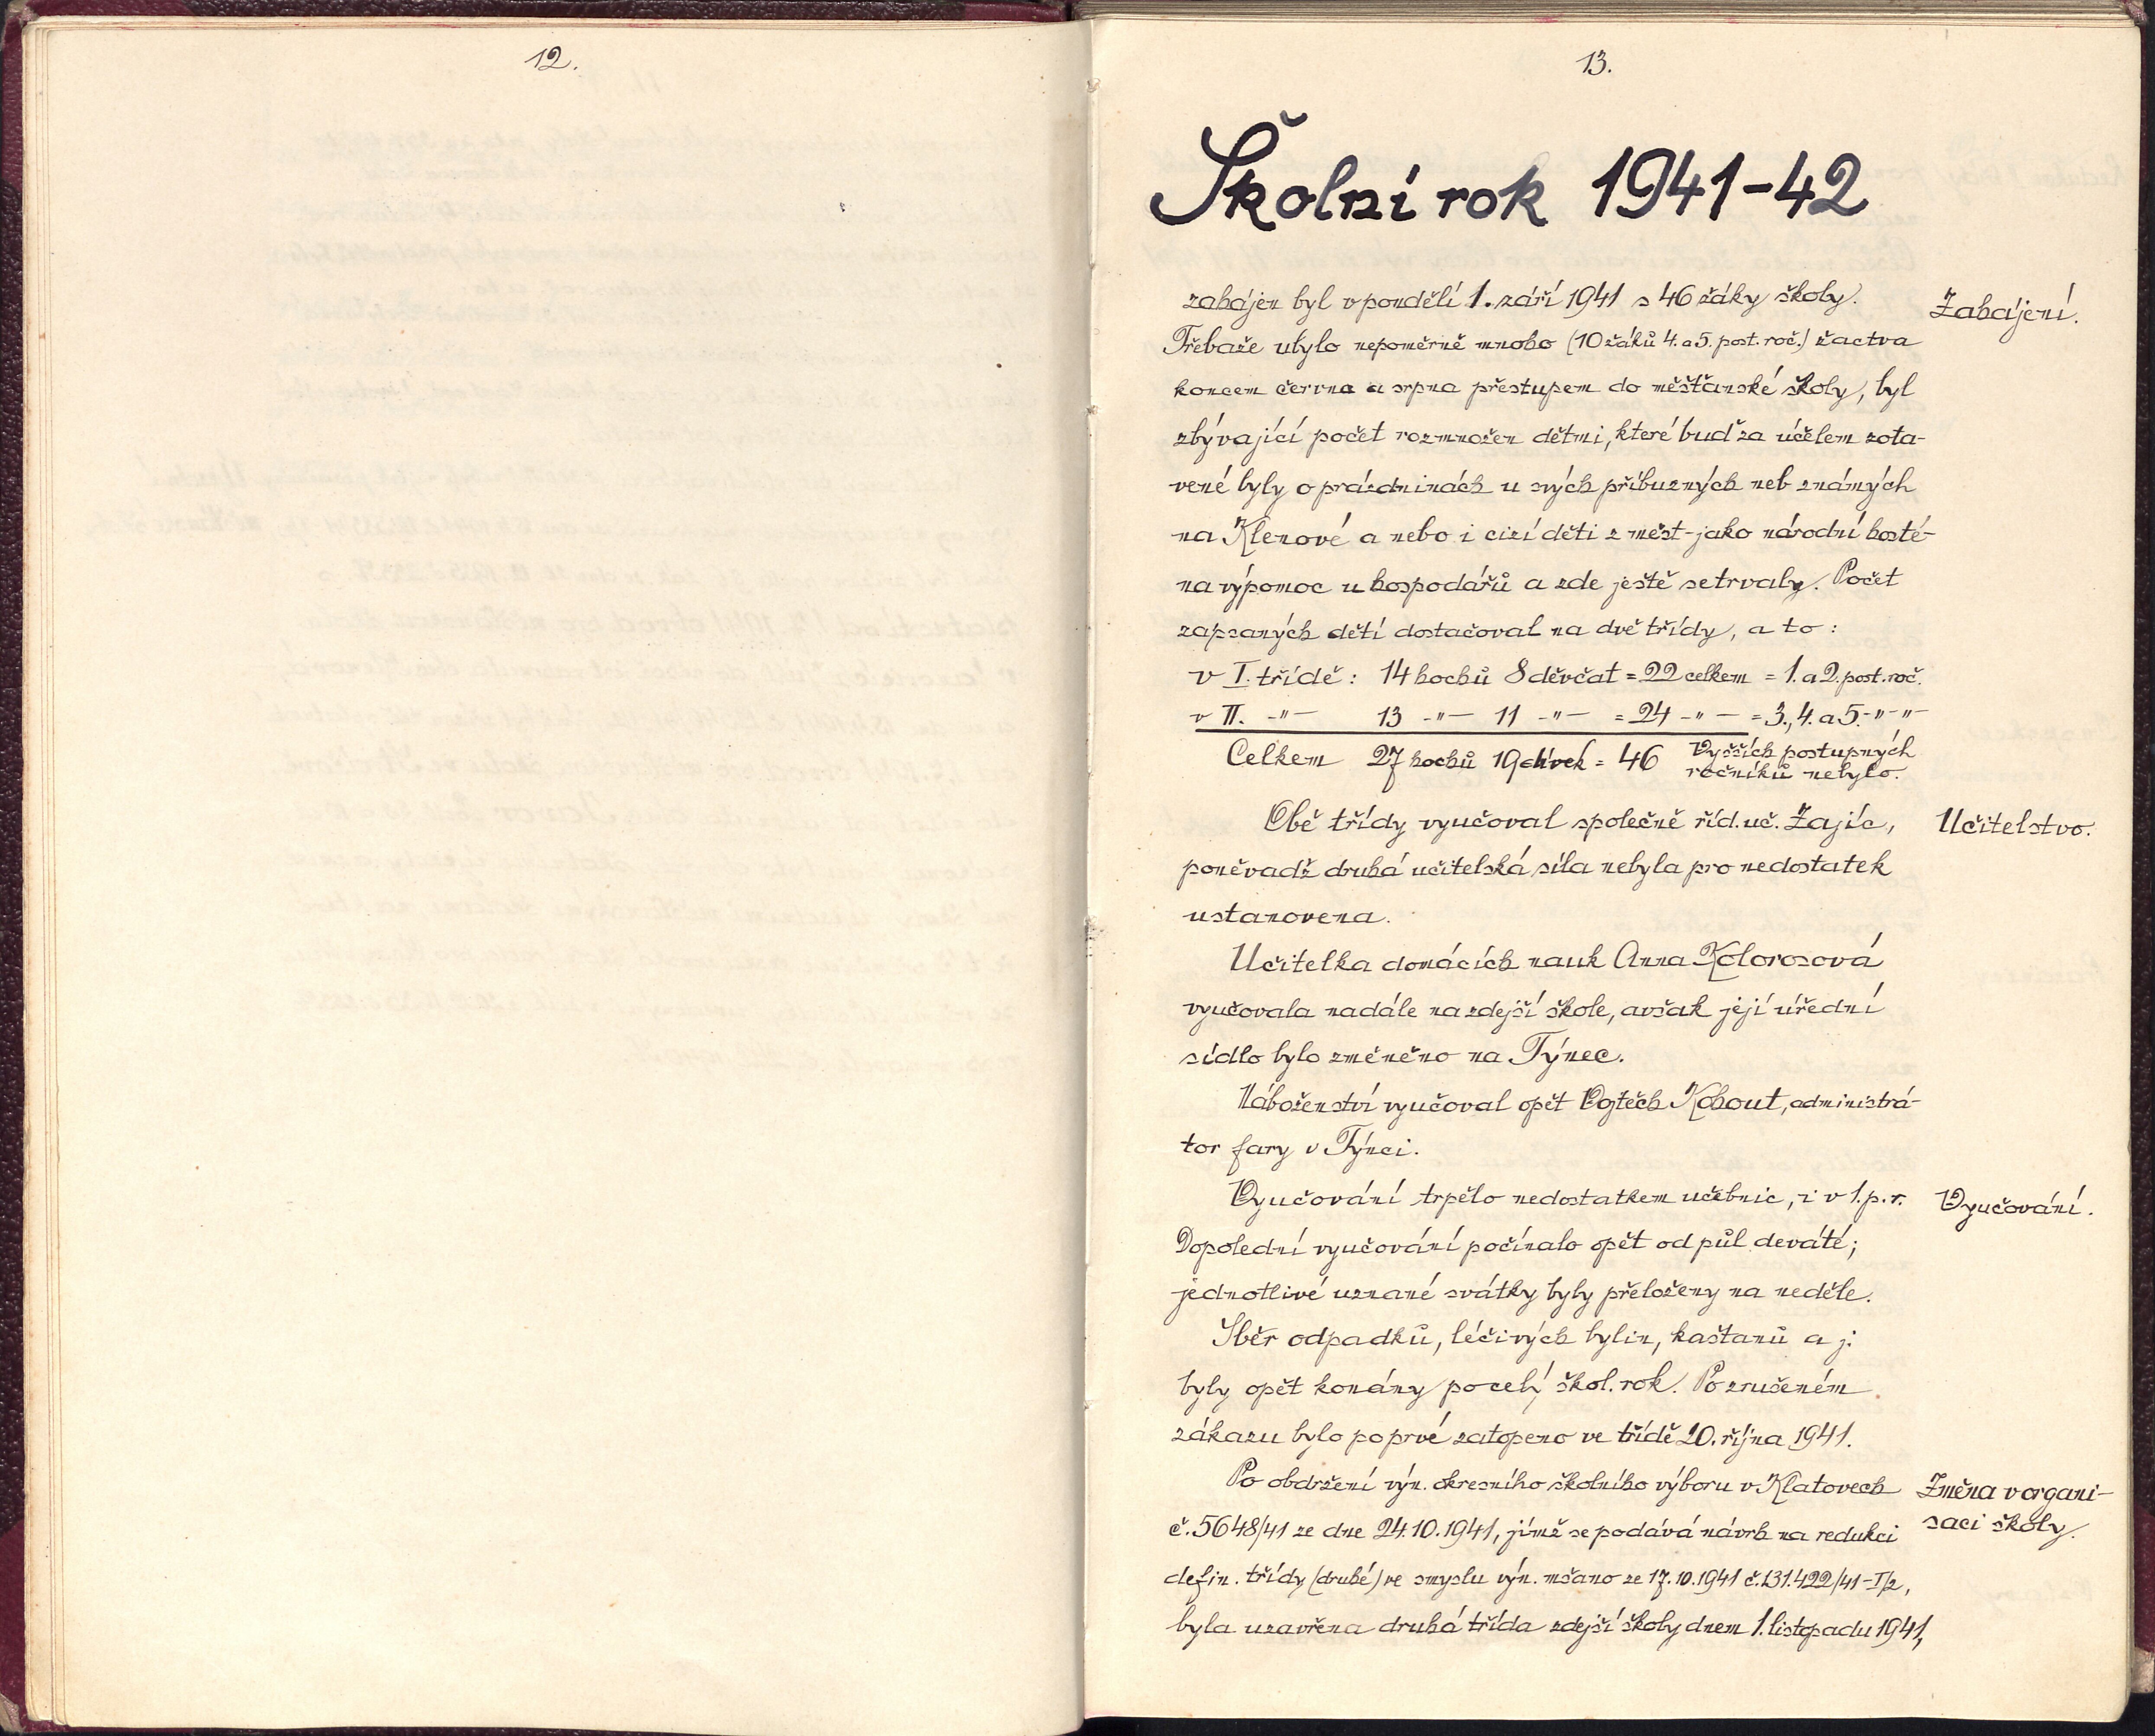 12.
13.
Školní rok 1941-42
zahájen byl v pondělí 1. září 1941 s 46 žáky školy.
Zahájení.
Třebaže ubylo nepoměrně mnoho (10 žáků 4. a 5. post. roč.) žactva
koncem června a srpna přestupem do měšťanské školy, byl
zbývající počet rozmnožen dětmi, které buď za účelem zota-
vené byly o prázdninách u svých příbuzných neb známých
na Klenové a nebo i cizí děti z měst - jako národní hosté -
na výpomoc u hospodářů a zde ještě setrvaly. Počet
zapsaných dětí dostačoval na dvě třídy, a to:
v I. třídě: 14 hochů 8 děvčat = 22 celkem = 1. a 2. post. roč.
v II. -"- 13 -"- 11 -"- = 24 -"- = 3., 4. a 5. -"-"-
Celkem 27 hochů 19 dívek = 46 Vyšších postupných
ročníků nebylo.
Obě třídy vyučoval společně říd. uč. Zajíc,
Učitelstvo.
poněvadž druhá učitelská síla nebyla pro nedostatek
ustanovena.
Učitelka domácích nauk Anna Kolorosová
vyučovala nadále na zdejší škole, avšak její úřední
sídlo bylo změněno na Týnec.
Náboženství vyučoval opět Vojtěch Kohout, administrá-
tor fary v Týnci.
Vyučování trpělo nedostatkem učebnic, i v 1. p. r.
Vyučování.
Dopolední vyučování počínalo opět od půl deváté;
jednotlivé uznané svátky byly přeloženy na neděle.
Sběr odpadků, léčivých bylin, kaštanů a j.
byly opět konány po celý škol. rok. Po zrušeném
zákazu bylo poprvé zatopeno ve třídě 20. října 1941.
Po obdržení výn. okresního školního výboru v Klatovech
Změna v organi-
č. 5648/41 ze dne 24.10.1941, jímž se podává návrh na redukci
saci školy.
defin. třídy (druhé) ve smyslu výn. mšano ze 17.10.1941 č. 131.422/41-I/2,
byla uzavřena druhá třída zdejší školy dnem 1. listopadu 1941,